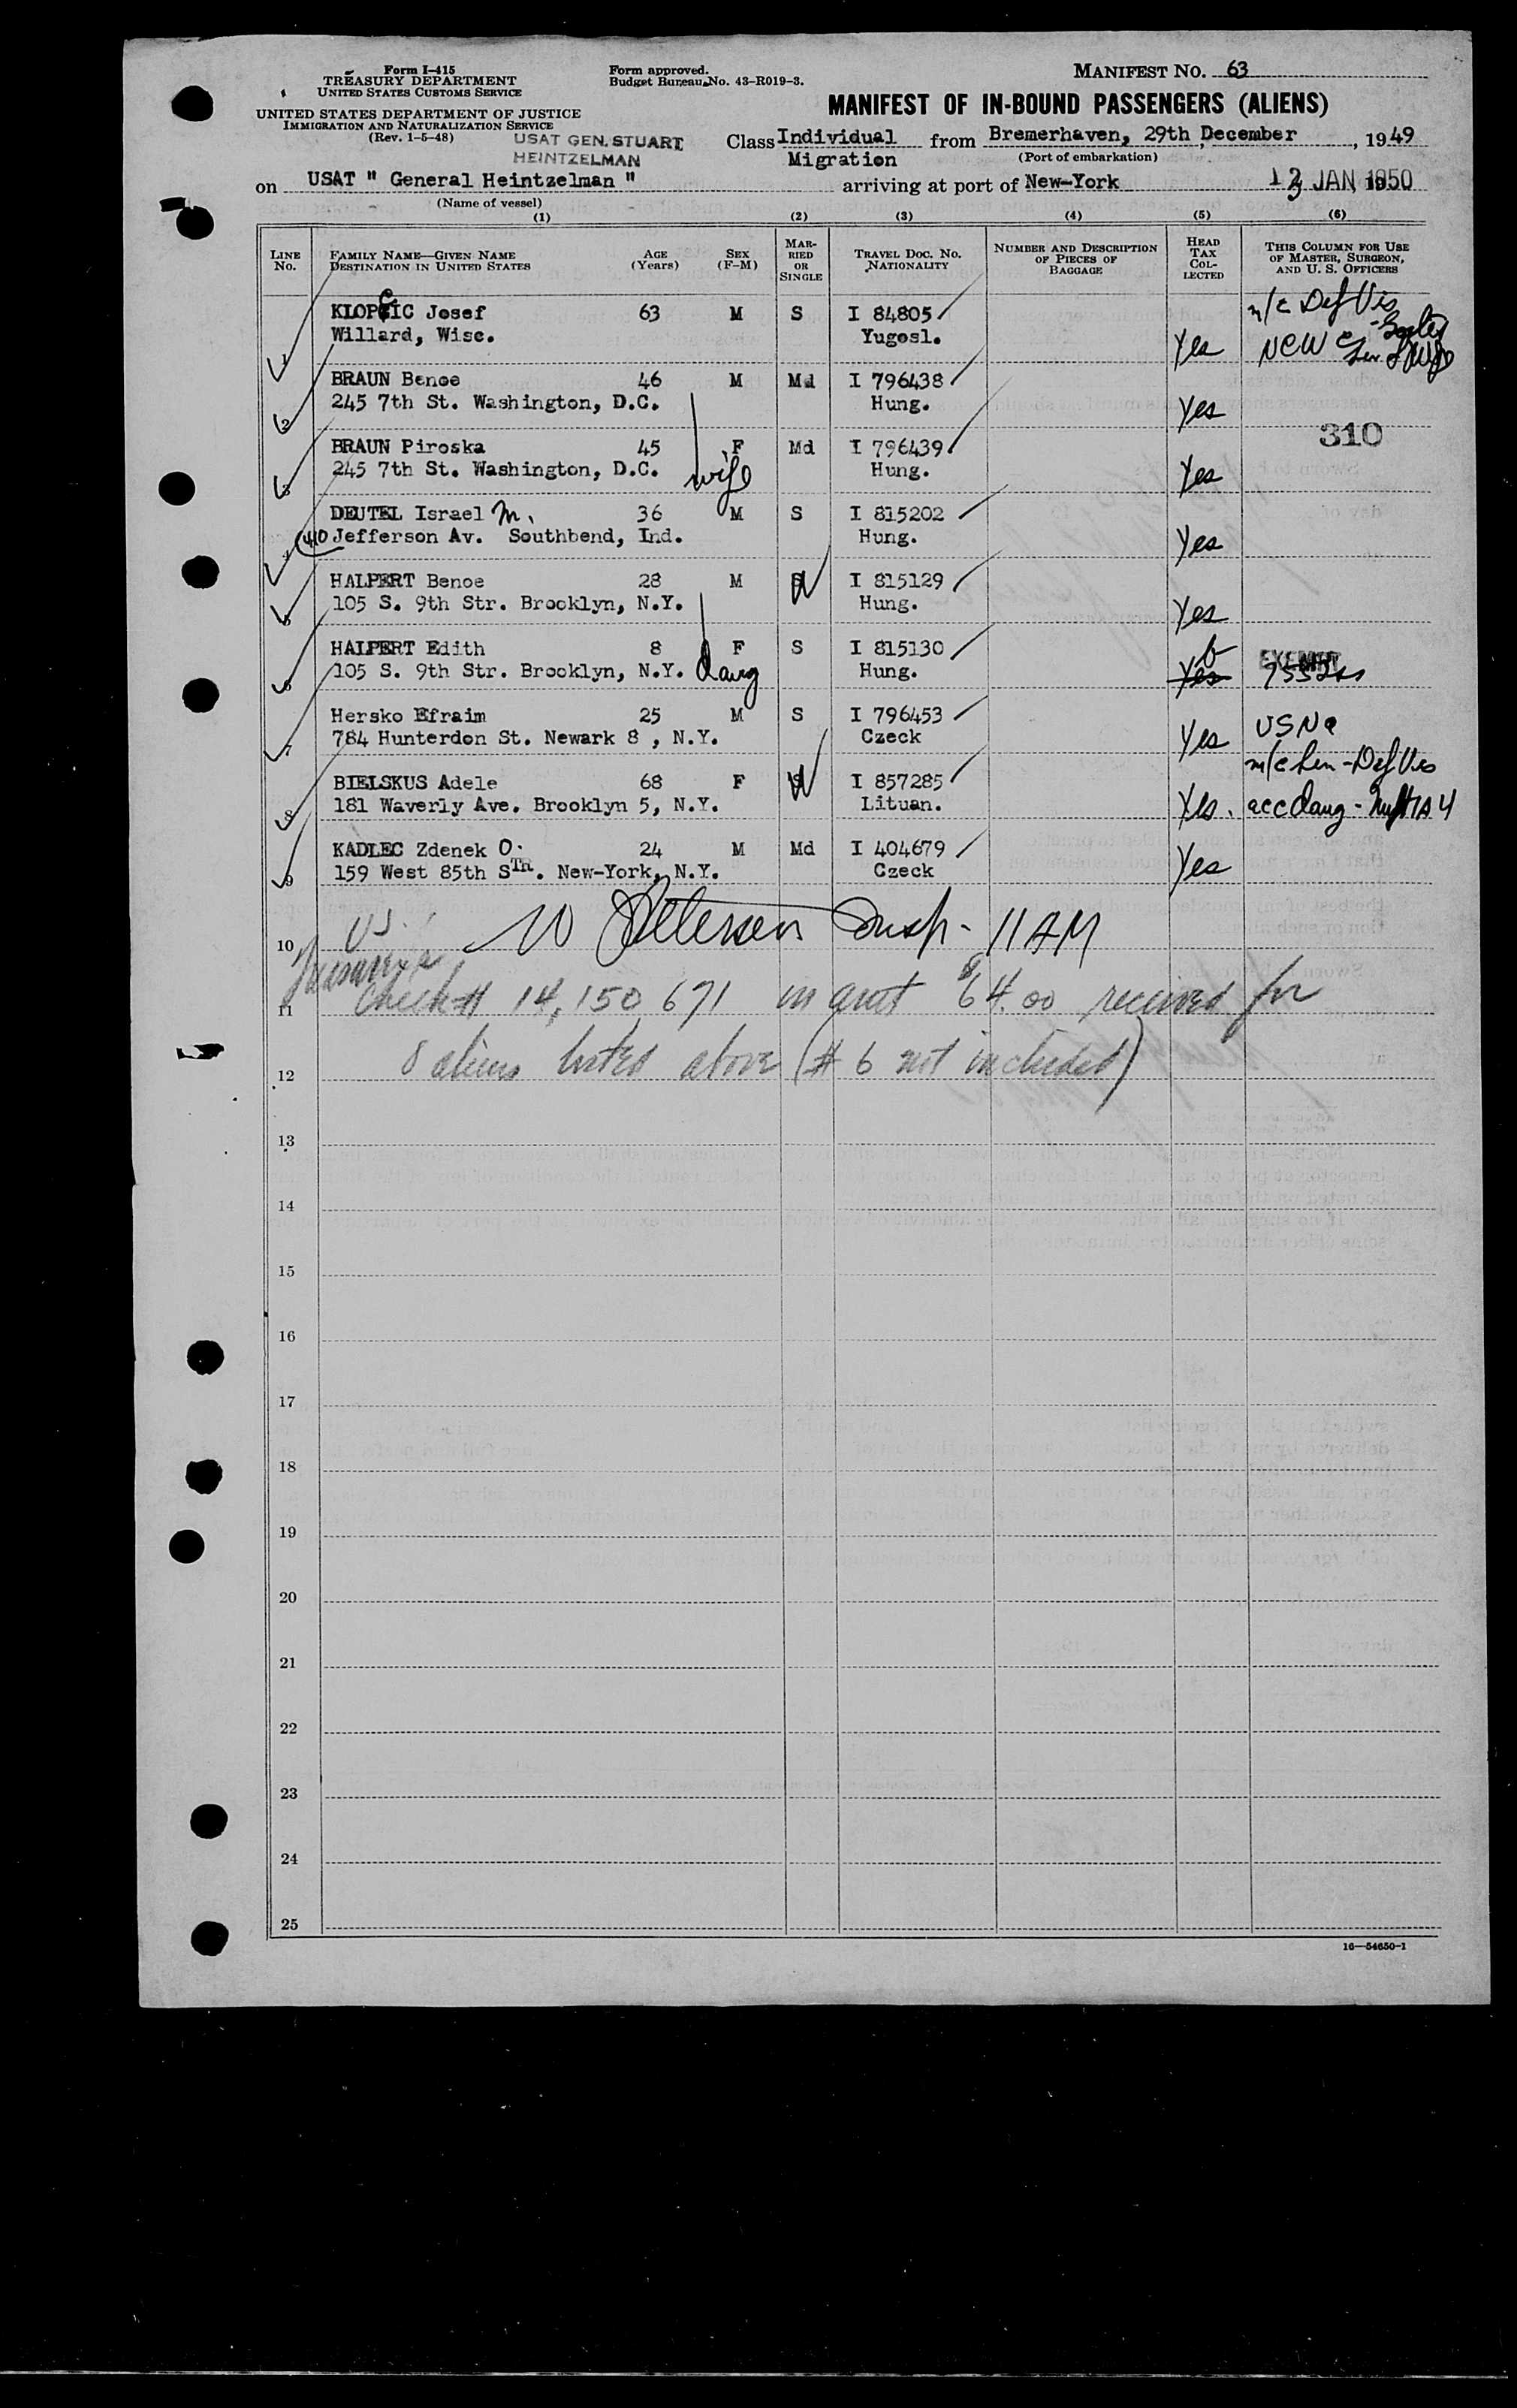 Form I-415
TREASURY DEPARTMENT
UNITED STATES CUSTOMS SERVICE
UNITED STATES DEPARTMENT OF JUSTICE
IMMIGRATION AND NATURALIZATION SERVICE
(Rev. 1-5-48)
Form approved.
Budget Bureau No. 43-R019-3.
MANIFEST NO. 63
MANIFEST OF IN-BOUND PASSENGERS (ALIENS)
USAT GEN. STUART
HEINTZELMAN
Class Individual from Bremerhaven, 29th December, 1949
Migration (Port of embarkation)
on USAT " General Heintzelman " arriving at port of New-York 13 JAN 1950
(Name of vessel)
(1) (2) (3) (4) (5) (6)
LINE No. FAMILY NAME—GIVEN NAME DESTINATION IN UNITED STATES AGE (Years) SEX (F-M) MARRIED OR SINGLE TRAVEL DOC. NO. NATIONALITY NUMBER AND DESCRIPTION OF PIECES OF BAGGAGE HEAD TAX COLLECTED THIS COLUMN FOR USE OF MASTER, SURGEON, AND U. S. OFFICERS
1 KLOPCIC Josef 63 M S I 84805 m/c Def Vis
Willard, Wisc. Yugosl. Yes NCW
2 BRAUN Benoe 46 M Md I 796438
245 7th St. Washington, D.C. Hung. Yes
310
3 BRAUN Piroska 45 F Md I 796439
245 7th St. Washington, D.C. wife Hung. Yes
4 DEUTEL Israel M. 36 M S I 815202
410 Jefferson Av. Southbend, Ind. Hung. Yes
5 HALPERT Benoe 28 M W I 815129
105 S. 9th Str. Brooklyn, N.Y. Hung. Yes
6 HALPERT Edith 8 F S I 815130 EXEMPT
105 S. 9th Str. Brooklyn, N.Y. daug Hung. Yes
7 Hersko Efraim 25 M S I 796453 USNa
784 Hunterdon St. Newark 8 , N.Y. Czeck Yes
8 BIELSKUS Adele 68 F W I 857285 m/c Sen - Def Vis
181 Waverly Ave. Brooklyn 5, N.Y. Lituan. Yes. acc daug -
9 KADLEC Zdenek O. 24 M Md I 404679
159 West 85th STR. New-York, N.Y. Czeck Yes
10 US. W Petersen Insp - 11 AM
Treasury
11 Check # 14,150,671 in amt $64.00 received for
12 8 aliens listed above (# 6 not included)
13
14
15
16
17
18
19
20
21
22
23
24
25
16—54650-1